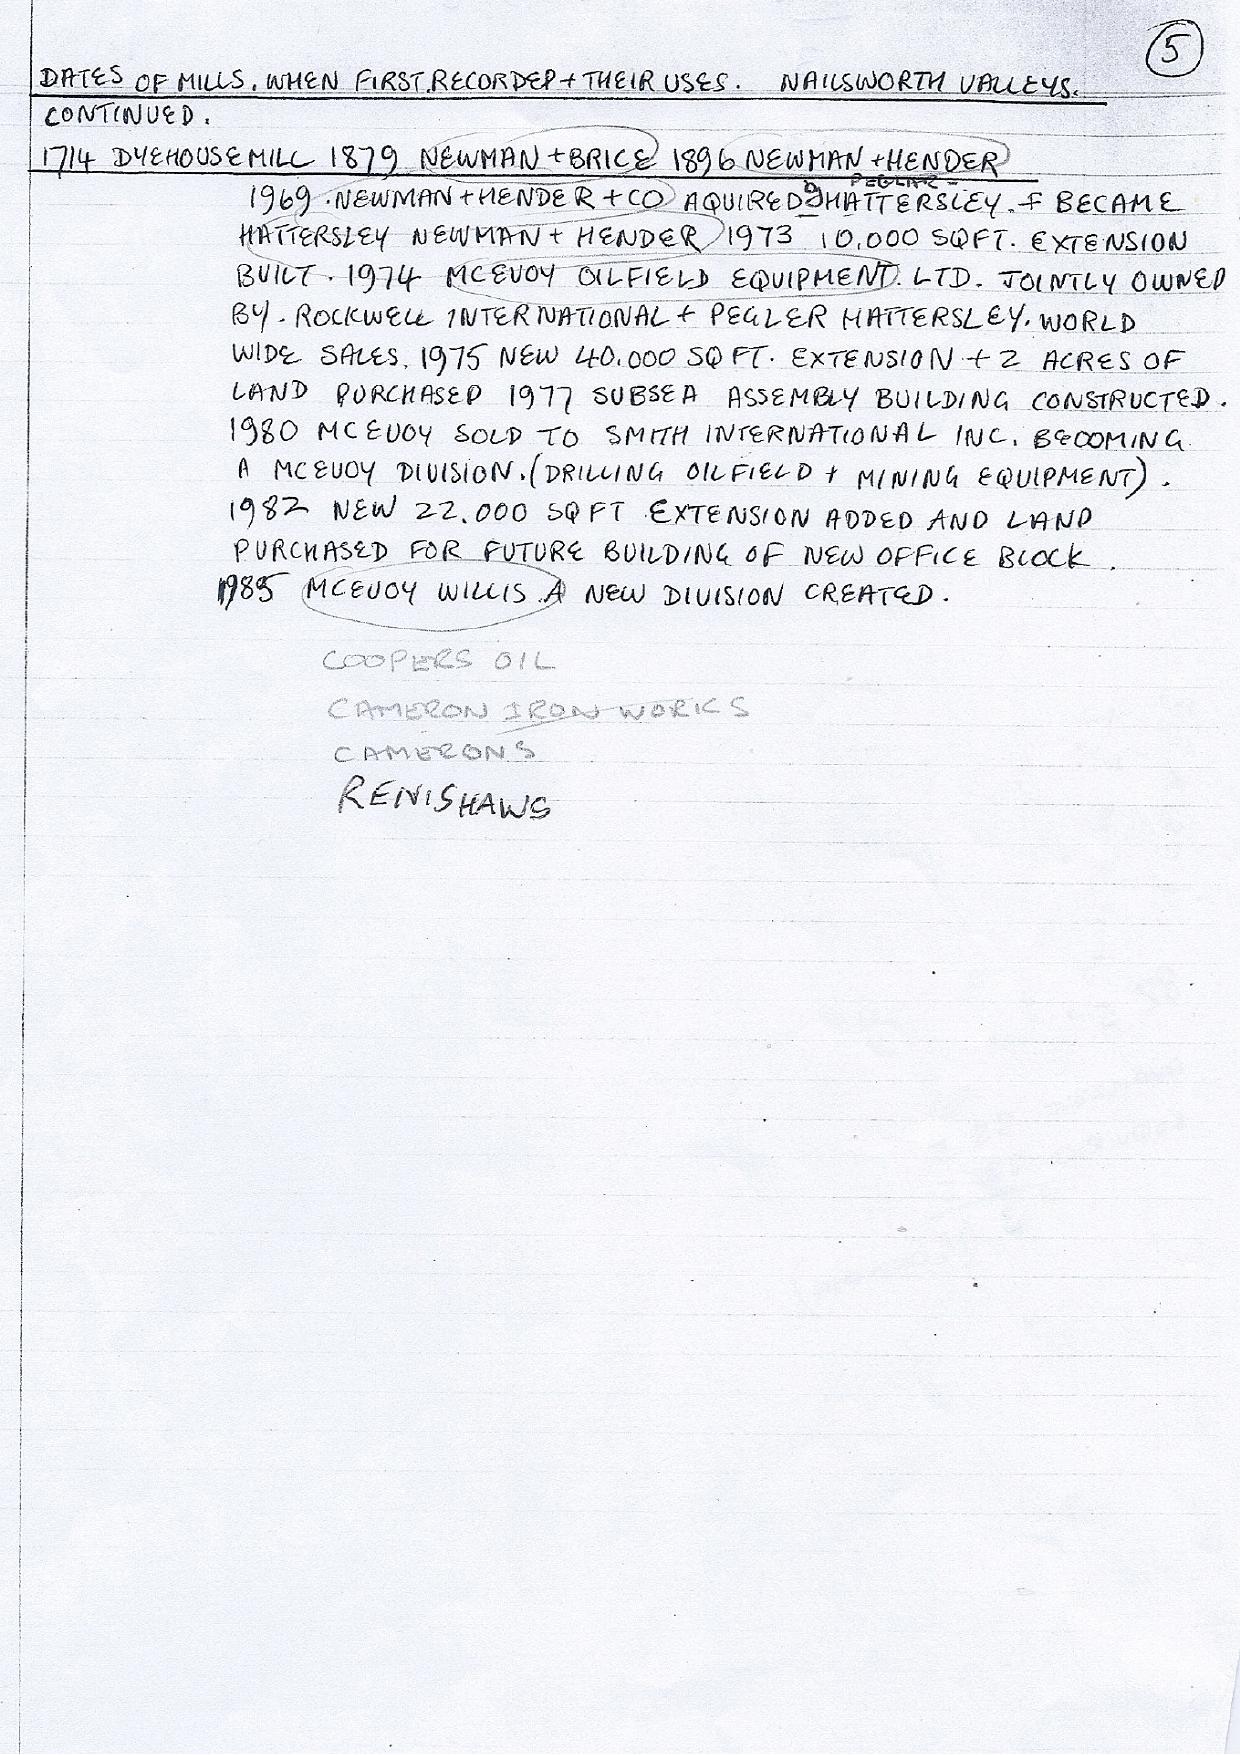 5
DATES OF MILLS. WHEN FIRST RECORDED + THEIR USES. NAILSWORTH VALLEYS.
CONTINUED.
1714 DYEHOUSE MILL 1879 NEWMAN + BRICE 1896 NEWMAN + HENDER
PEGLAR -
1969. NEWMAN + HENDER + CO AQUIRED BY HATTERSLEY. + BECAME
HATTERSLEY NEWMAN + HENDER 1973 10,000 SQFT. EXTENSION
BUILT. 1974 MCEVOY OILFIELD EQUIPMENT. LTD. JOINTLY OWNED
BY. ROCKWELL INTERNATIONAL + PEGLER HATTERSLEY. WORLD
WIDE SALES. 1975 NEW 40.000 SQ FT. EXTENSION + 2 ACRES OF
LAND PURCHASED 1977 SUBSEA ASSEMBLY BUILDING CONSTRUCTED.
1980 MCEVOY SOLD TO SMITH INTERNATIONAL INC. BECOMING
A MCEVOY DIVISION. (DRILLING OILFIELD + MINING EQUIPMENT).
1982 NEW 22.000 SQ FT EXTENSION ADDED AND LAND
PURCHASED FOR FUTURE BUILDING OF NEW OFFICE BLOCK.
1985 MCEVOY WILLIS A NEW DIVISION CREATED.
COOPERS OIL
CAMERON IRON WORKS
CAMERONS
RENISHAWS